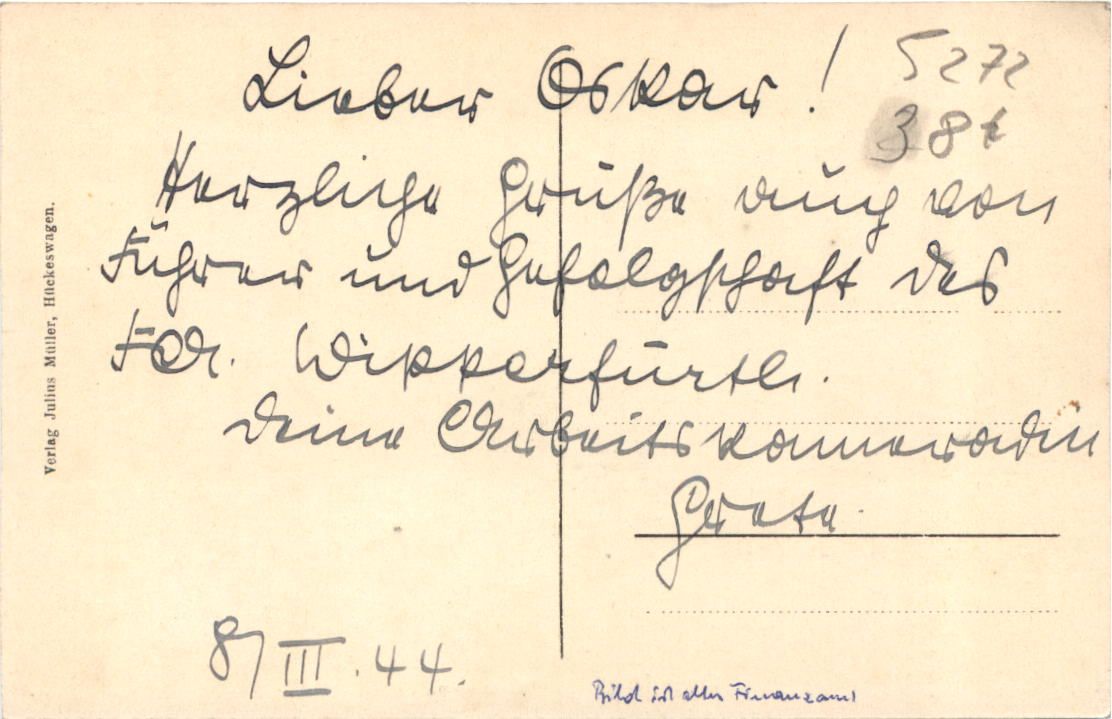 Lieber Oskar!
5272
38t
Herzliche Grüße auch von
Führer und Gefolgschaft des
FA. Wipperfürth.
Deine Arbeitskameradin
Grete.
8/III.44.
Bild ist altes Finanzamt
Verlag Julius Müller, Hückeswagen.